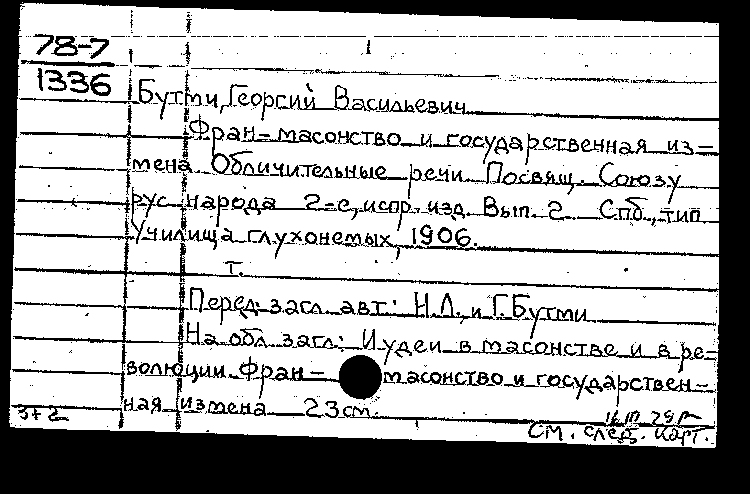 78-7
1336
Бутми, Георгий Васильевич
Фран-масонство и государственная из-
мена. Обличительные речи. Посвящ. Союзу
рус. народа. 2-е, испр. изд. Вып. 2. Спб., тип.
Училища глухонемых, 1906.
т.
Перед. загл. авт.: Н.Л. и Г. Бутми
На обл. загл.: Иудеи в масонстве и в ре-
волюции. Фран-масонство и государствен-
ная измена. 23 см.
3+2
см. след. карт.